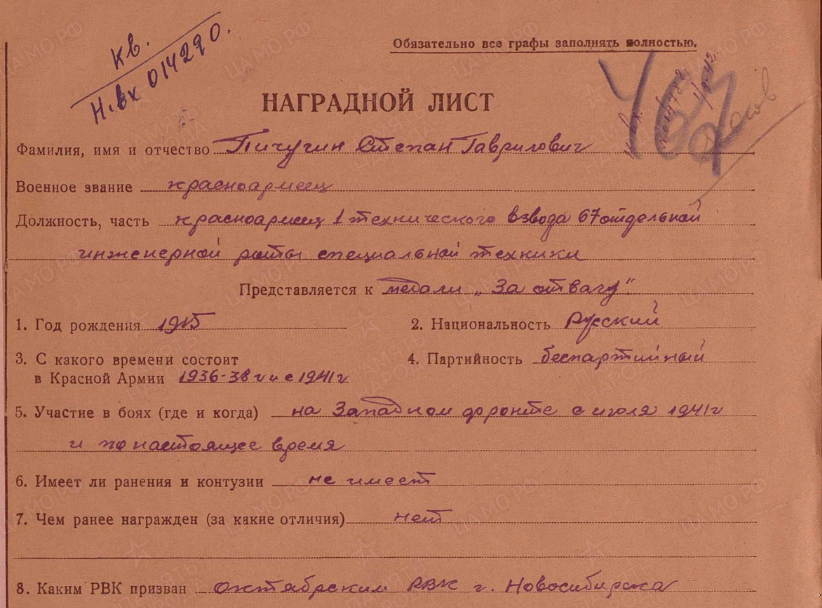 Обязательно все графы заполнять полностью.
кв.
Н.вх 014290.
НАГРАДНОЙ ЛИСТ
Фамилия, имя и отчество Пичугин Степан Гаврилович
Военное звание красноармеец
Должность, часть красноармеец 1 технического взвода 67 отдельной
инженерной роты специальной техники
Представляется к медали „За отвагу".
1. Год рождения 1915
2. Национальность Русский
3. С какого времени состоит
в Красной Армии 1936-38 г и с 1941 г
4. Партийность беспартийный
5. Участие в боях (где и когда) на Западном фронте с июля 1941 г
и по настоящее время
6. Имеет ли ранения и контузии не имеет
7. Чем ранее награжден (за какие отличия) нет
8. Каким РВК призван октябрским РВК г. Новосибирска
ЦАМО.РФ